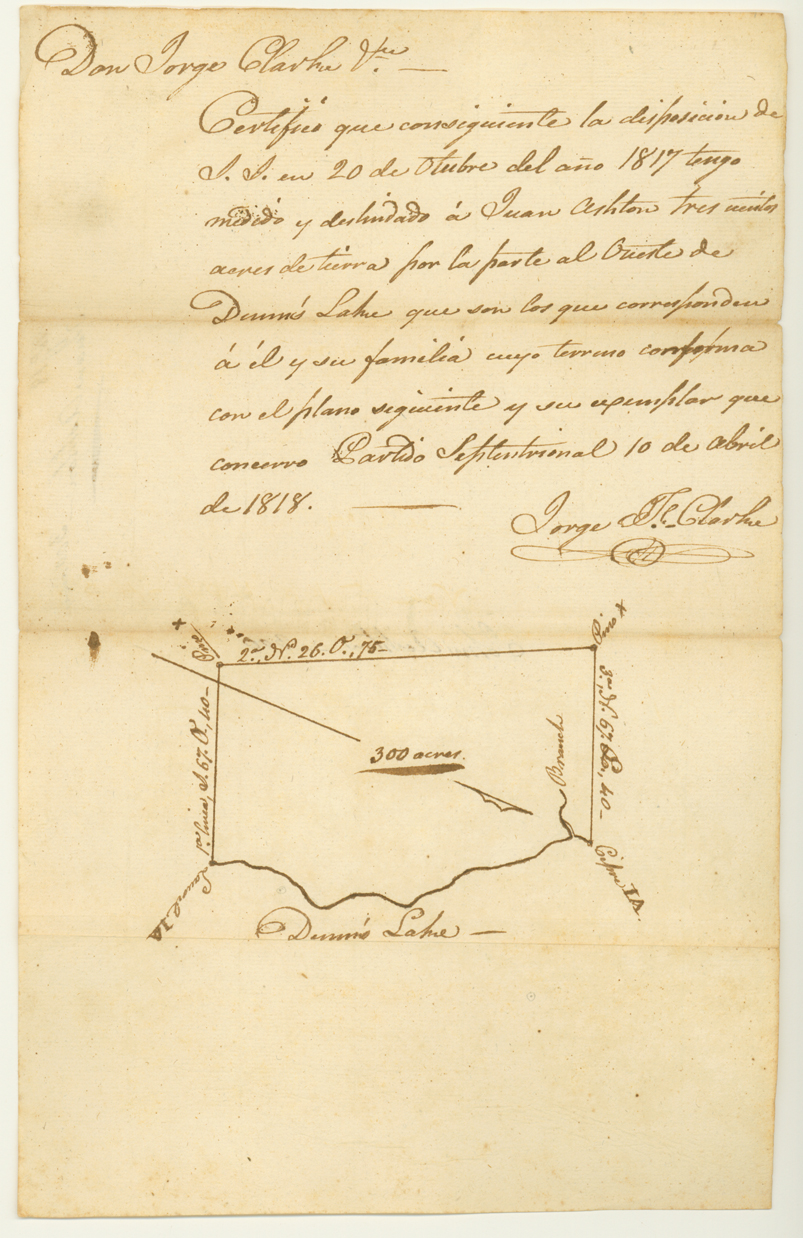 Don Jorge Clarke &.ª —
Certifico que consiguiente la disposicion de
S. S. en 20 de Otubre del año 1817 tengo
medido y deslindado á Juan Ashton tres cientos
acres de tierra por la parte al Oueste de
Dunn's Lake que son los que corresponden
á él y su familia cuyo terreno conforma
con el plano siguiente y su exemplar que
concerro Partido Septentrional 10 de Abril
de 1818. —
Jorge J. F. Clarke
Pino X
2.ª, N. 26. O., 75—
Pino X
3.ª, N. 67. E., 40—
1.ª linea, S. 67. O., 40—
300 acres.
Branch
Laurel IA
Cipre IA
Dunn's Lake —